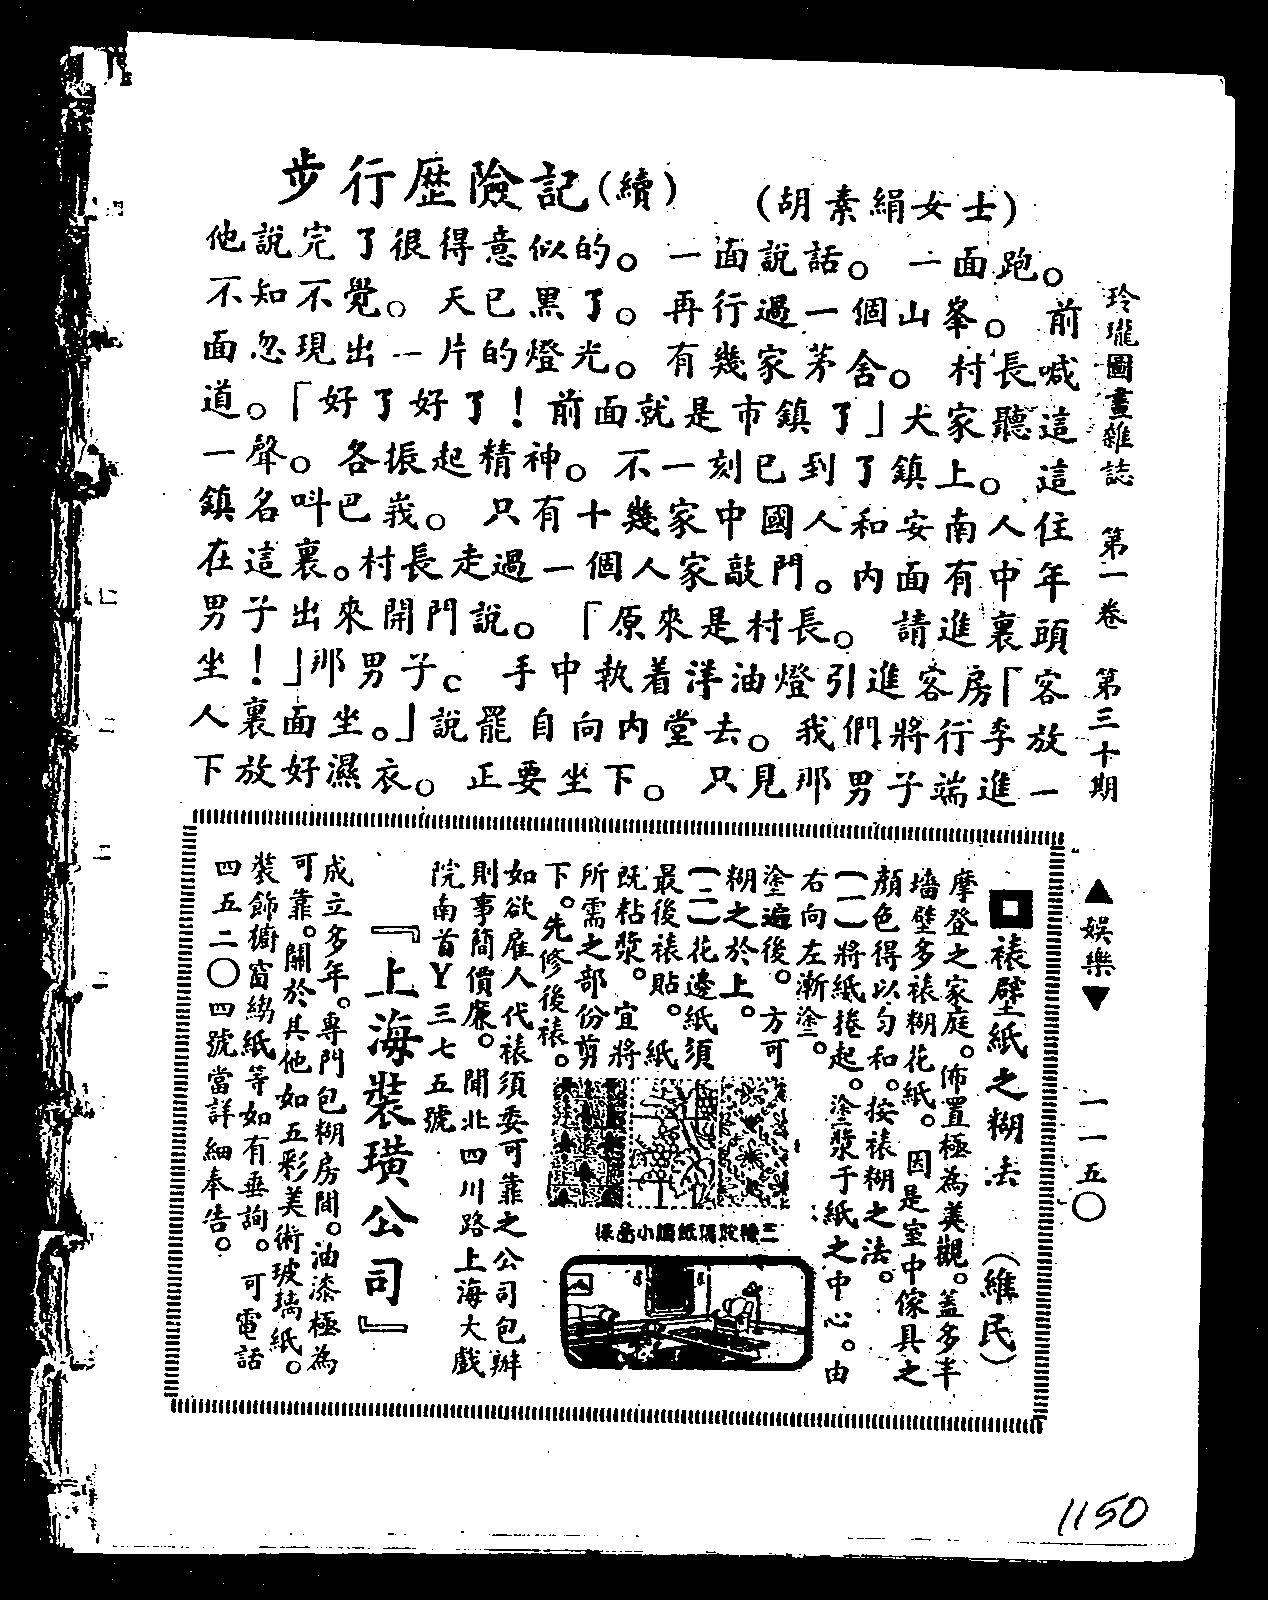 步行歷險記(續)　(胡素絹女士)
他說完了很得意似的。一面說話。一面跑。
不知不覺。天已黑了。再行過一個山峯。前
面忽現出一片的燈光。有幾家茅舍。村長喊
道。「好了好了!前面就是市鎮了」大家聽這
一聲。各振起精神。不一刻已到了鎮上。這
鎮名叫巴峩。只有十幾家中國人和安南人住
在這裏。村長走過一個人家敲門。內面有中年
男子出來開門說。「原來是村長。請進裏頭
坐!」那男子。手中執着洋油燈引進客房「客
人裏面坐。」說罷自向內堂去。我們將行李放
下放好濕衣。正要坐下。只見那男子端進一
玲瓏圖畫雜誌　第一卷　第三十期
▲娛樂▼　一一五〇
裱壁紙之糊法　(維民)
摩登之家庭。佈置極為美觀。蓋多半
墻壁多裱糊花紙。因是室中傢具之
顏色得以勻和。按裱糊之法。
(一)將紙捲起。塗漿于紙之中心。由
右向左漸塗。
塗遍後。方可
糊之於上。
(二)花邊紙須
最後裱貼。紙
既粘漿。宜將
所需之部份剪
下。先修後裱。
三種玻璃紙牆小畚樣
如欲雇人代裱須委可靠之公司包辦
則事簡價廉。聞北四川路上海大戲
院南首Y三七五號
『上海裝璜公司』
成立多年。專門包糊房間。油漆極為
可靠。關於其他如五彩美術玻璃紙。
裝飾櫥窗縐紙等如有垂詢。可電話
四五二〇四號當詳細奉告。
1150